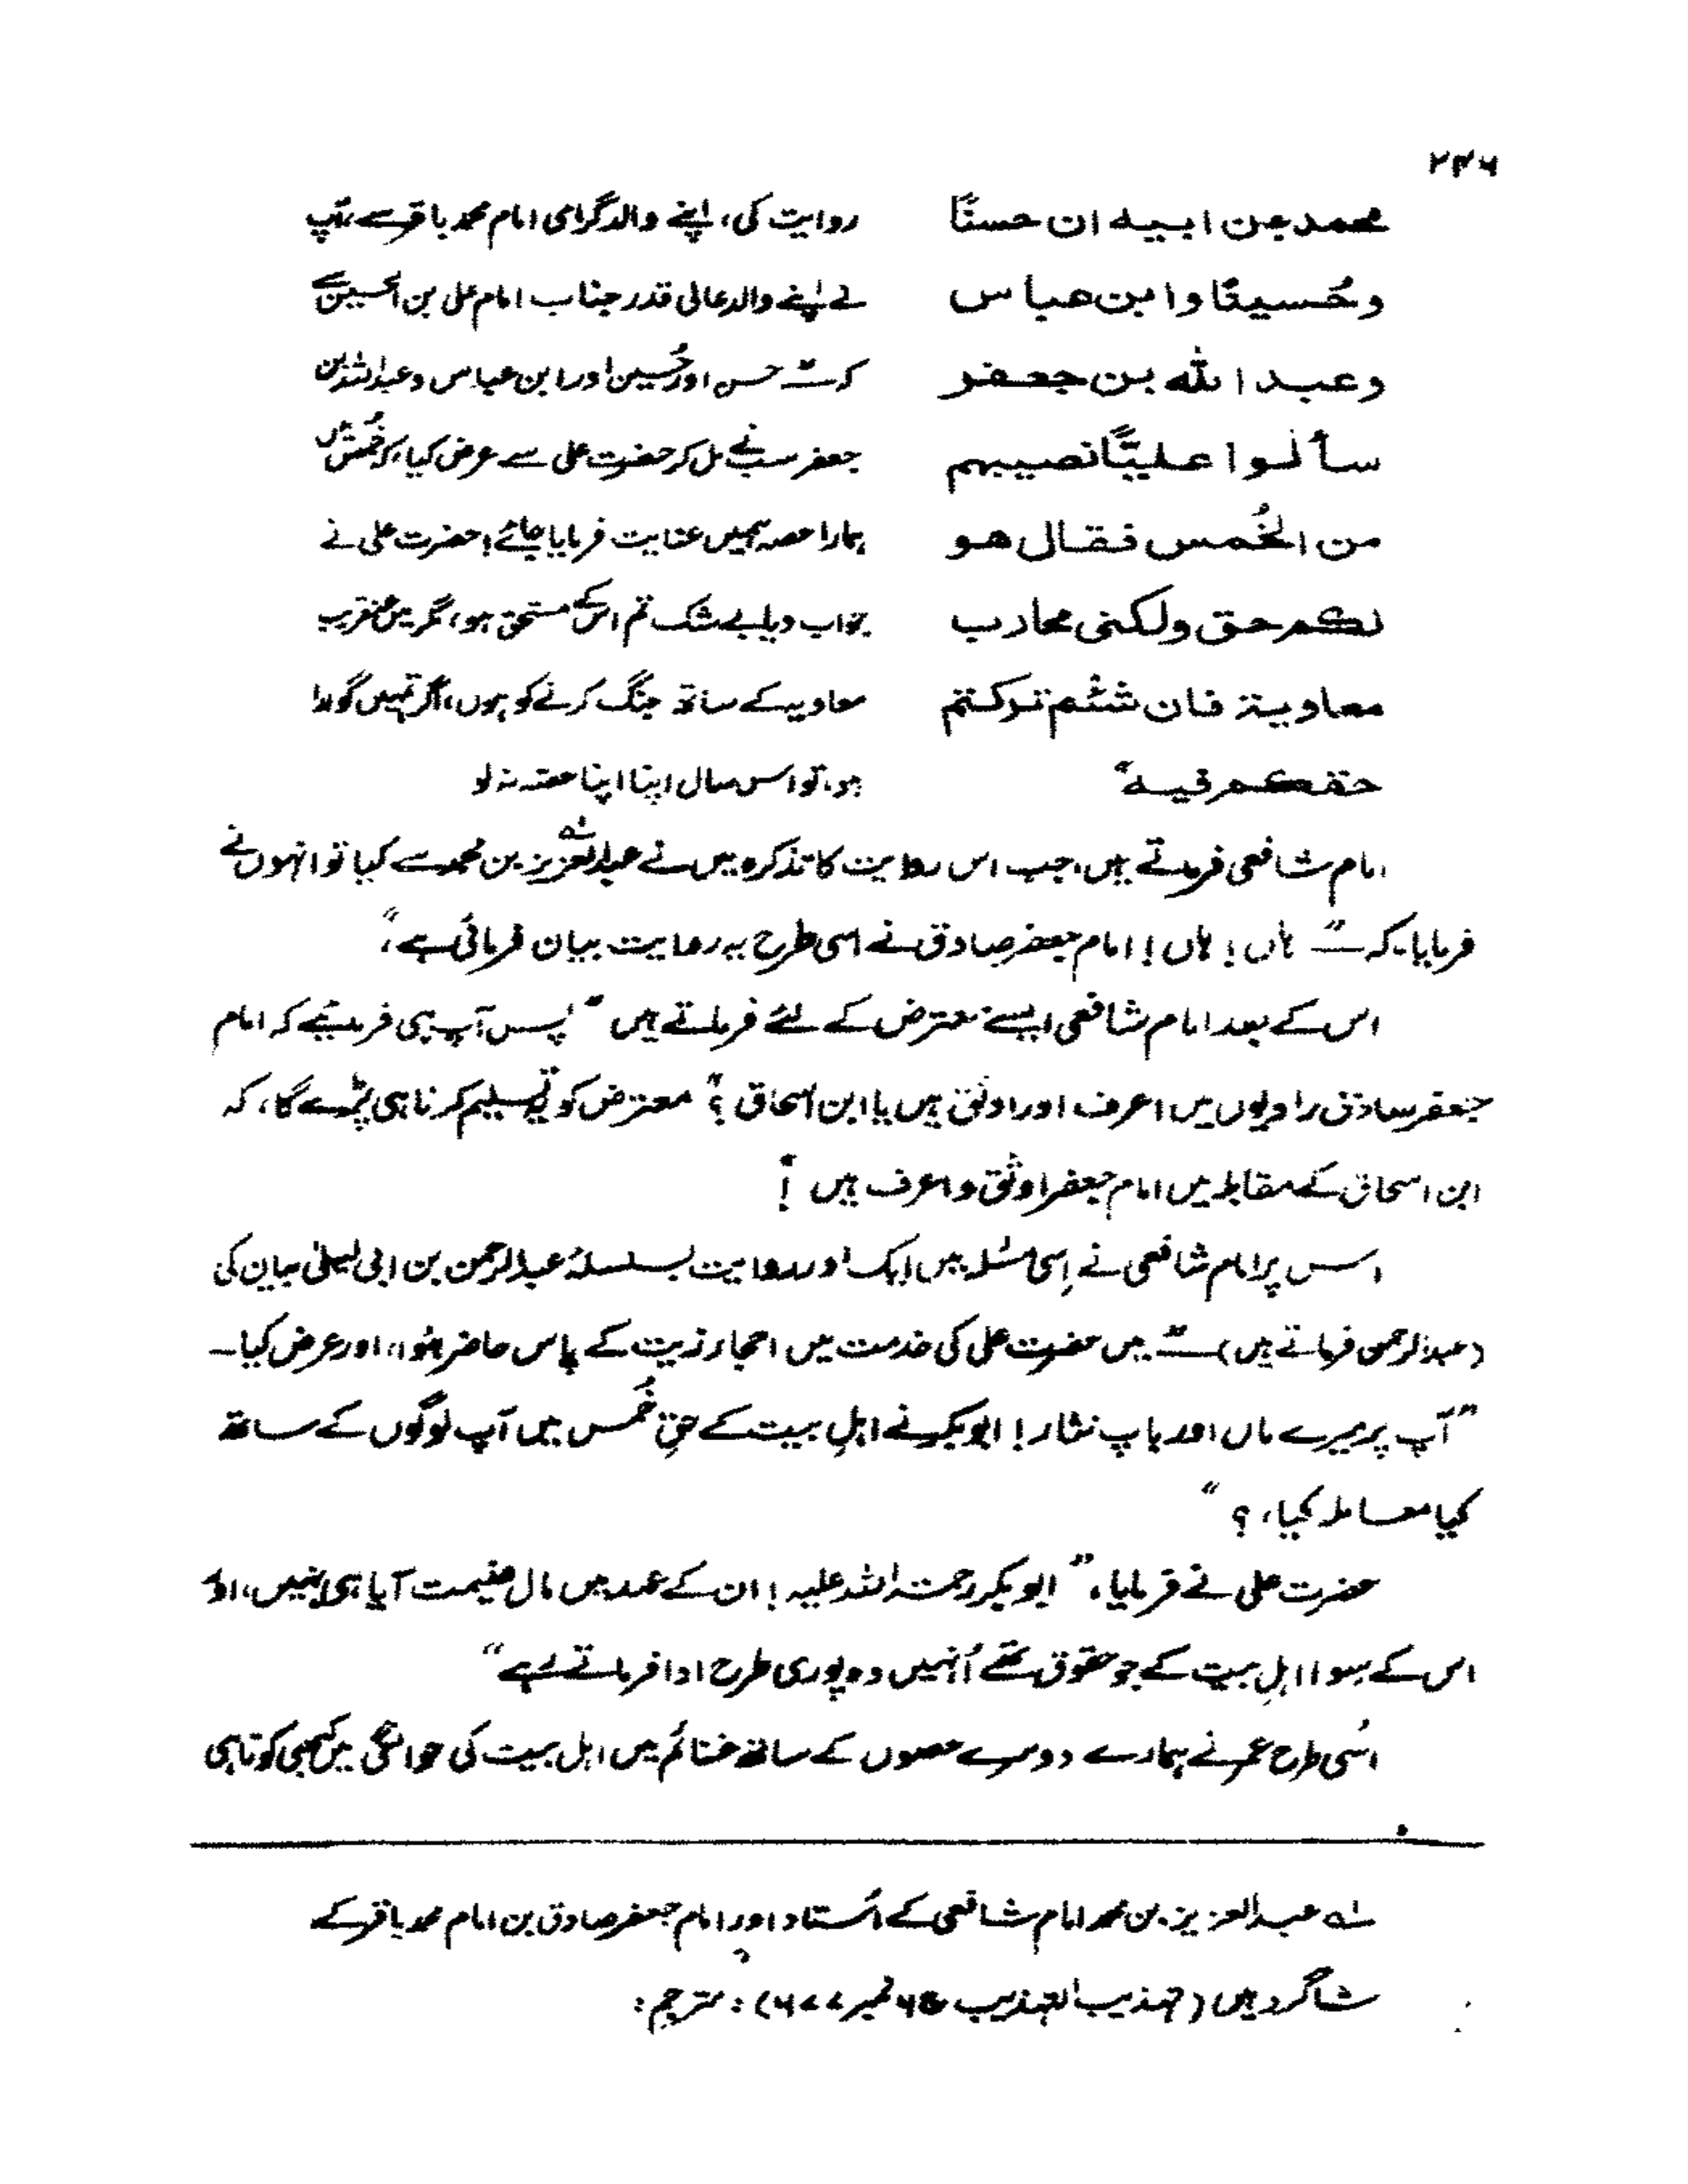 ۲۴۶
محمد عن ابیه ان حسنًا
وحُسینًا وابن عباس
وعبد الله بن جعفر
سألوا علیًّا نصیبهم
من الخُمس فقال هو
لکم حق ولکنی محارب
معاویة فان شئتم ترکتم
حقکم فیه"
روایت کی، اپنے والد گرامی امام محمد باقر سے، آپ
نے اپنے والد عالی قدر جناب امام علی بن الحسین سے
کہ ــ" حسن اور حُسین اور ابن عباس و عبداللہ بن
جعفر سب نے مل کر حضرت علی سے عرض کیا، کہ خُمس میں
ہمارا حصہ ہمیں عنایت فرمایا جائے! حضرت علی نے
جواب دیا، بے شک تم اس کے مستحق ہو، مگر میں عنقریب
معاویہ کے ساتھ جنگ کرنے کو ہوں، اگر تمہیں گوارا
ہو، تو اس سال اپنا اپنا حصہ نہ لو
امام شافعی فرماتے ہیں، جب اس روایت کا تذکرہ میں نے عبدالعزیز بن محمد سے کیا تو انہوں نے
فرمایا۔ کہ ــ" ہاں! ہاں! امام جعفر صادق نے اسی طرح یہ روایت بیان فرمائی ہے"،
اس کے بعد امام شافعی ایسے معترض کے لئے فرماتے ہیں "پس آپ ہی فرمائیے کہ امام
جعفر صادق راویوں میں اعرف اور اوثق ہیں یا ابن اسحاق؟" معترض کو تسلیم کرنا ہی پڑے گا، کہ
ابن اسحاق کے مقابلہ میں امام جعفر اوثق و اعرف ہیں!"
اس پر امام شافعی نے اِسی مسئلہ میں ایک اور روایت بسلسلۂ عبدالرحمن بن ابی لیلیٰ بیان کی
(عبدالرحمن فرماتے ہیں) ــ" میں حضرت علی کی خدمت میں احجار زیت کے پاس حاضر ہُوا، اور عرض کیا ــ
"آپ پر میرے ماں اور باپ نثار! ابوبکر نے اہلِ بیت کے حقِ خُمس میں آپ لوگوں کے ساتھ
کیا معاملہ کیا، ؟"
حضرت علی نے فرمایا، "ابوبکر رحمتہ اللہ علیہ! ان کے عہد میں مال غنیمت آیا ہی نہیں، اور
اس کے سوا اہلِ بیت کے جو حقوق تھے اُنہیں وہ پوری طرح ادا فرماتے رہے"
اُسی طرح عمر نے ہمارے دوسرے حصوں کے ساتھ غنائم میں اہل بیت کی حوالگی میں کبھی کوتاہی
ــہ عبدالعزیز بن محمد امام شافعی کے اُستاد اور امام جعفر صادق بن امام محمد باقر کے
شاگرد ہیں (تہذیب التہذیب ج۶ نمبر ۶۷۷): مترجم: